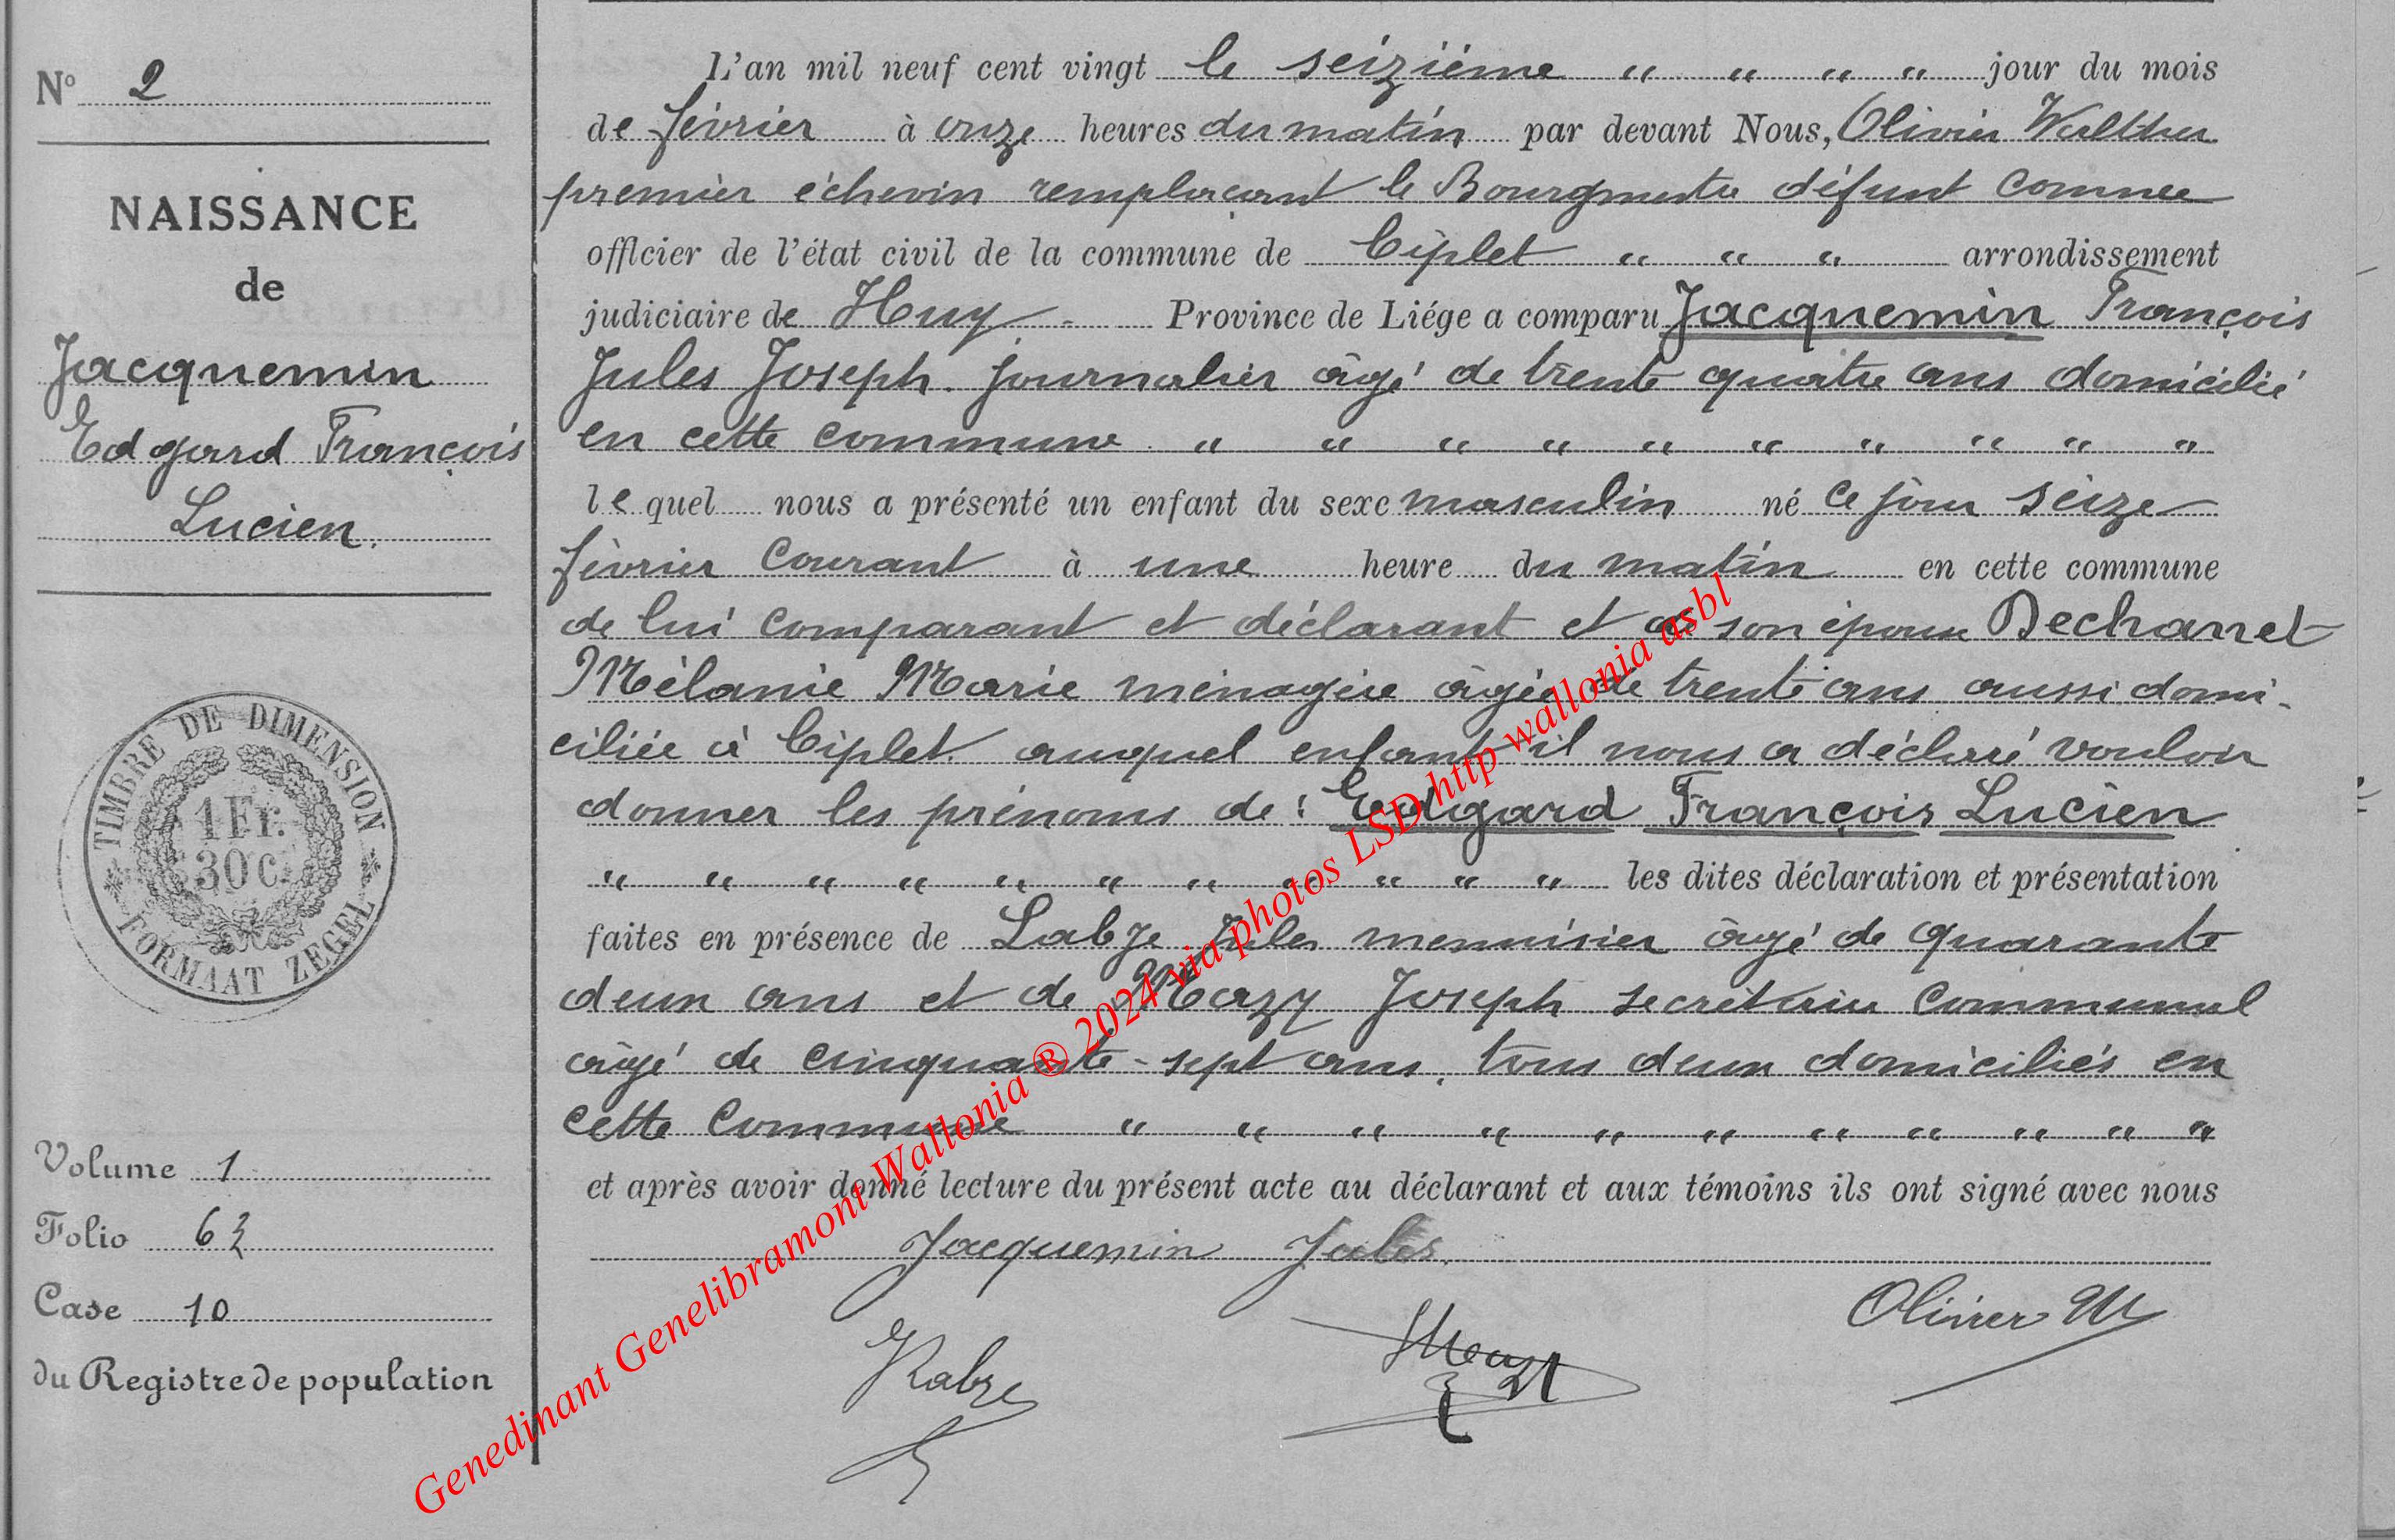 N° 2
NAISSANCE
de
Jacquemin
Edgard François
Lucien.
TIMBRE DE DIMENSION
1 Fr.
30 C.
FORMAAT ZEGEL
Volume 1
Folio 63
Case 10
du Registre de population
L'an mil neuf cent vingt le seizième " " " " jour du mois
de février à onze heures du matin par devant Nous, Olivier Walther
premier échevin remplaçant le Bourgmestre défunt comme
officier de l'état civil de la commune de Ciplet " " " arrondissement
judiciaire de Huy - Province de Liége a comparu Jacquemin François
Jules Joseph. journalier âgé de trente quatre ans domicilié
en cette commune " " " " " " " " " "
le quel nous a présenté un enfant du sexe masculin né ce jour seize
février courant à une heure du matin en cette commune
de lui comparant et déclarant et de son épouse Dechanet
Mélanie Marie ménagère âgée de trente ans aussi domi-
ciliée à Ciplet. auquel enfant il nous a déclaré vouloir
donner les prénoms de : Edgard François Lucien
" " " " " " " " " " " les dites déclaration et présentation
faites en présence de Jules menuisier âgé de quarante
deux ans et de Mazy Joseph secrétaire communal
âgé de cinquante-sept ans, tous deux domiciliés en
cette commune " " " " " " " " " " "
et après avoir donné lecture du présent acte au déclarant et aux témoins ils ont signé avec nous
Jacquemin Jules.
Olivier W
Mazy
Genedinant Genelibramont Wallonia ® 2024 via photos LSD http wallonia asbl